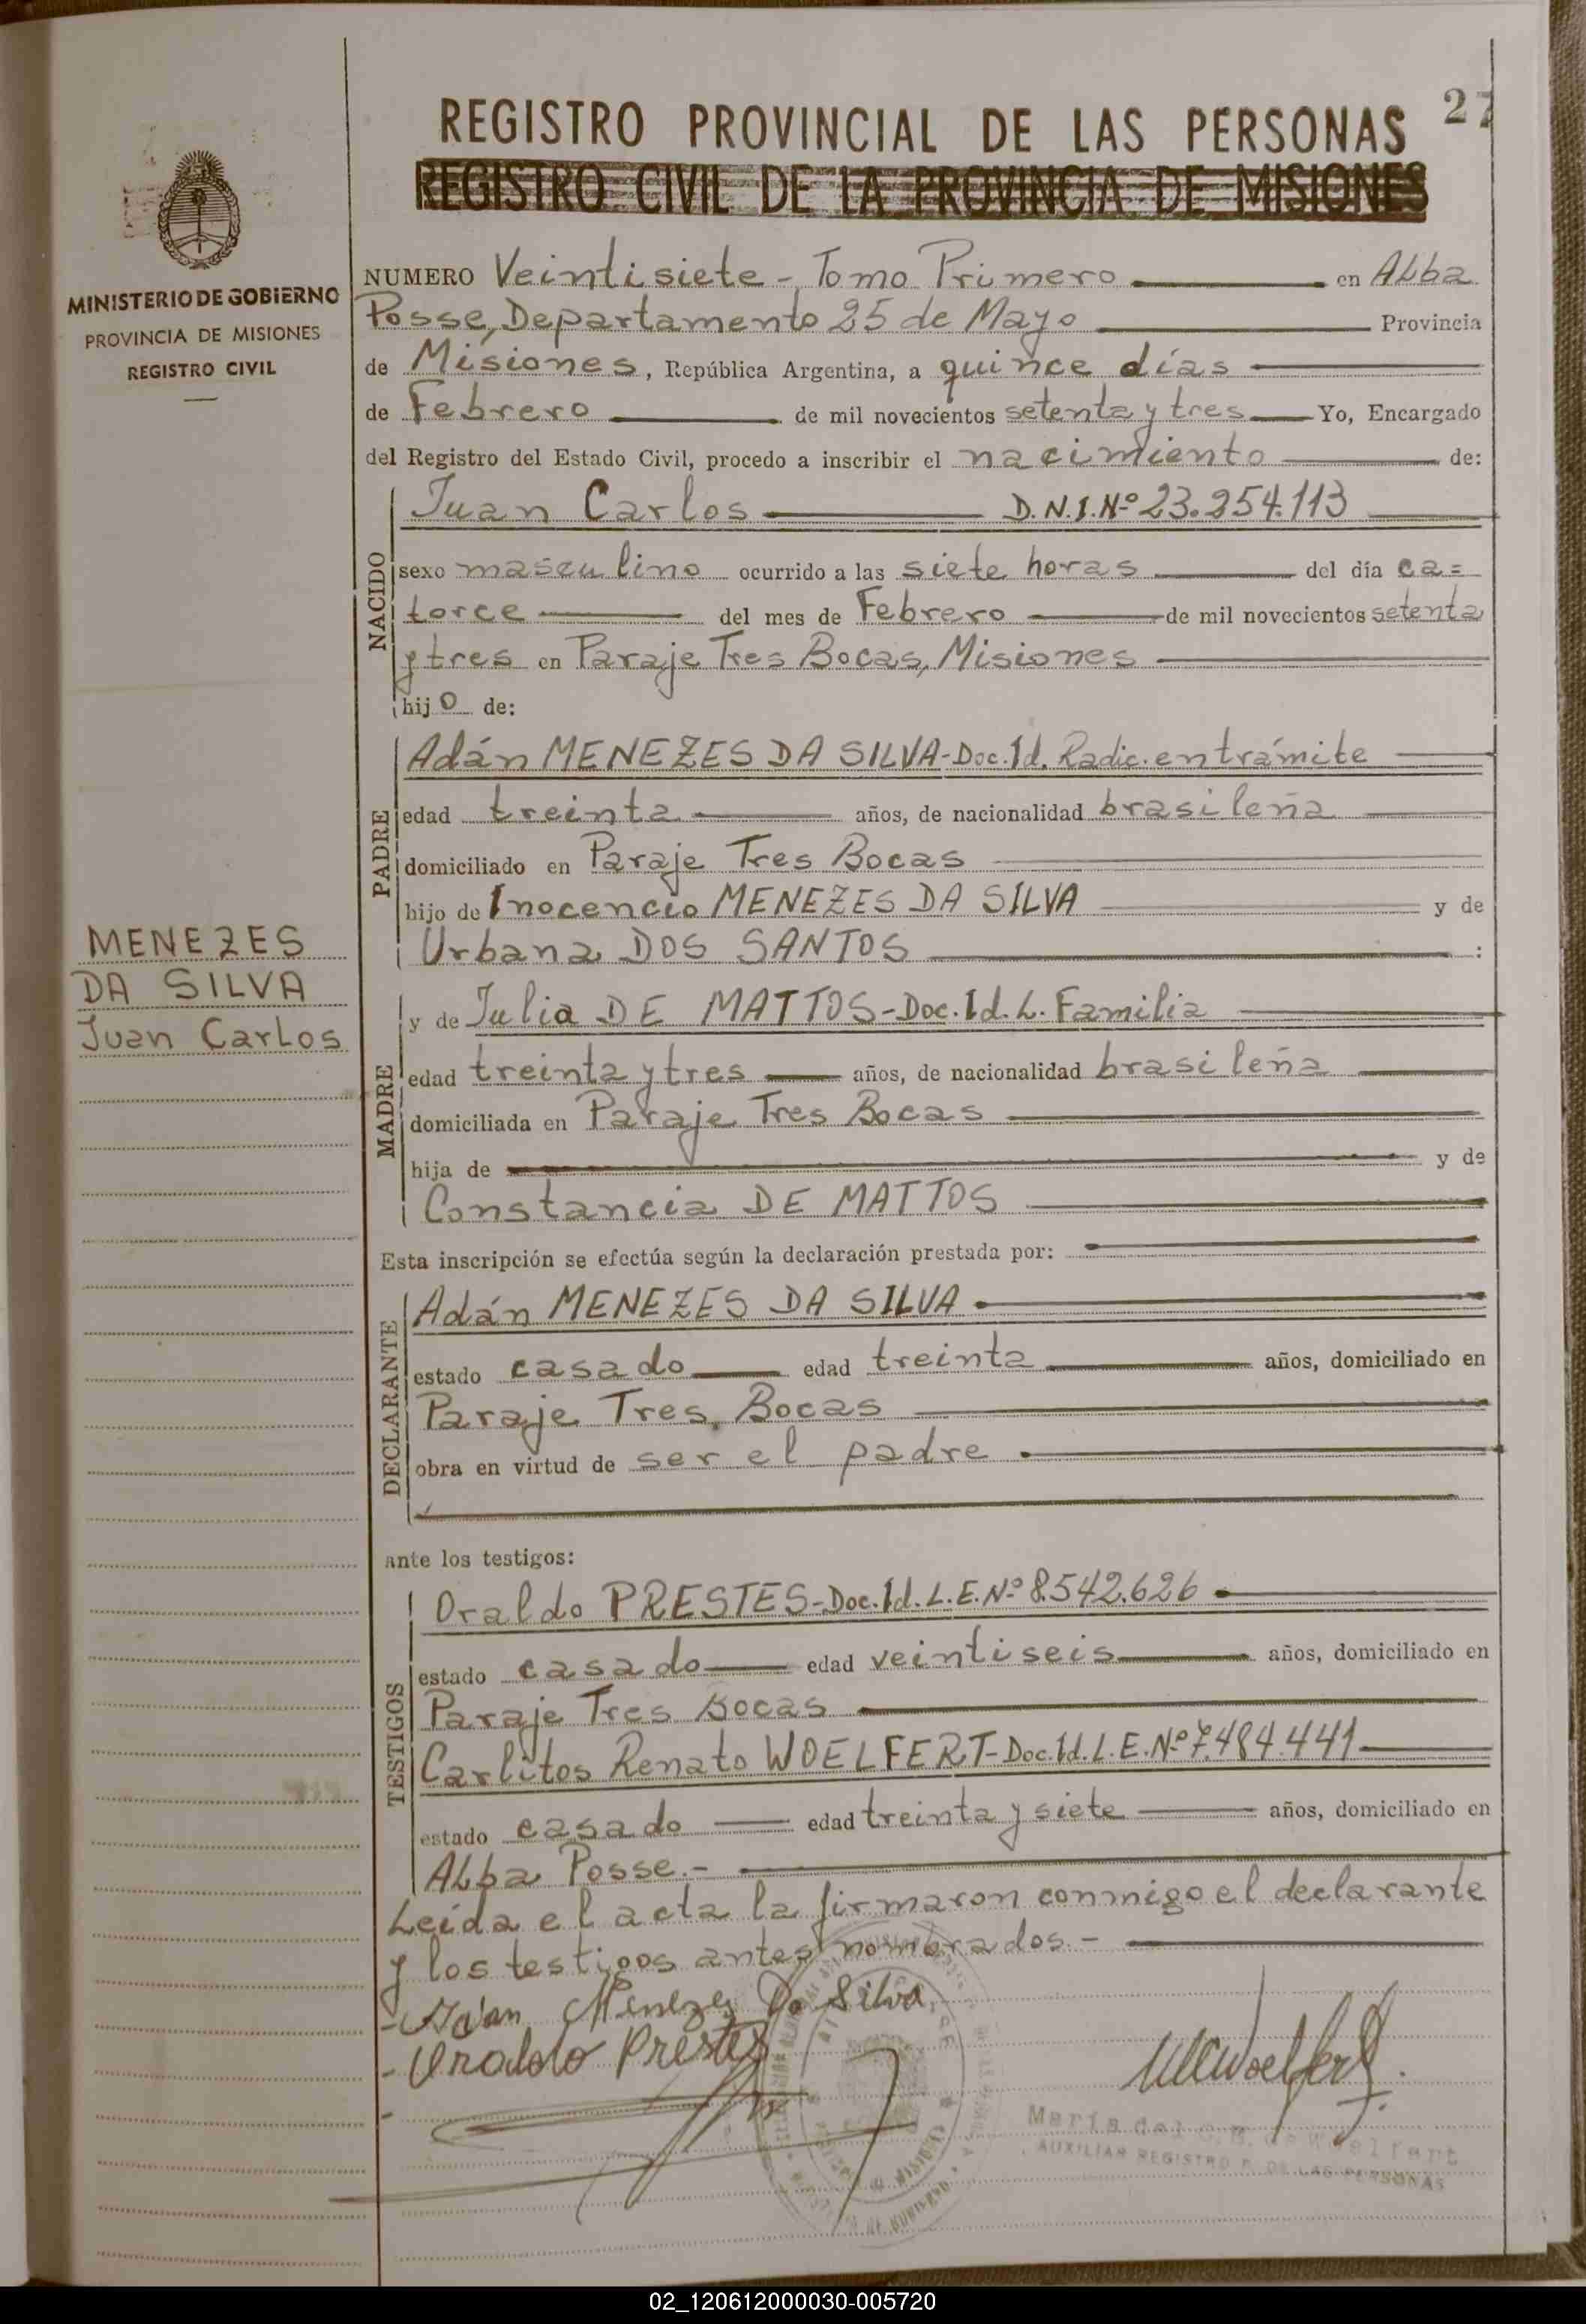 27
REGISTRO PROVINCIAL DE LAS PERSONAS
REGISTRO CIVIL DE LA PROVINCIA DE MISIONES
MINISTERIO DE GOBIERNO
PROVINCIA DE MISIONES
REGISTRO CIVIL
NUMERO Veintisiete - Tomo Primero en Alba
Posse, Departamento 25 de Mayo Provincia
de Misiones, República Argentina, a quince días
de Febrero de mil novecientos setenta y tres Yo, Encargado
del Registro del Estado Civil, procedo a inscribir el nacimiento de:
NACIDO
Juan Carlos D.N.I.Nº 23.254.113
sexo masculino ocurrido a las siete horas del día ca=
torce del mes de Febrero de mil novecientos setenta
y tres en Paraje Tres Bocas, Misiones
hijo de:
PADRE
Adán MENEZES DA SILVA-Doc.Id. Radic. en trámite
edad treinta años, de nacionalidad brasileña
domiciliado en Paraje Tres Bocas
hijo de Inocencio MENEZES DA SILVA y de
Urbana DOS SANTOS :
MENEZES
DA SILVA
Juan Carlos
MADRE
y de Julia DE MATTOS-Doc.Id.L.Familia
edad treinta y tres años, de nacionalidad brasileña
domiciliada en Paraje Tres Bocas
hija de y de
Constancia DE MATTOS
Esta inscripción se efectúa según la declaración prestada por:
DECLARANTE
Adán MENEZES DA SILVA
estado casado edad treinta años, domiciliado en
Paraje Tres Bocas
obra en virtud de ser el padre
ante los testigos:
TESTIGOS
Oraldo PRESTES-Doc.Id.L.E.Nº 8.542.626
estado casado edad veintiseis años, domiciliado en
Paraje Tres Bocas
Carlitos Renato WOELFERT-Doc.Id.L.E.Nº 7.484.441
estado casado edad treinta y siete años, domiciliado en
Alba Posse.-
Leída el acta la firmaron conmigo el declarante
y los testigos antes nombrados.-
- Adan Menezes Da Silva
- Oraldo Prestes
Maria del
AUXILIAR REGISTRO P. DE LAS PERSONAS
02_120612000030-005720